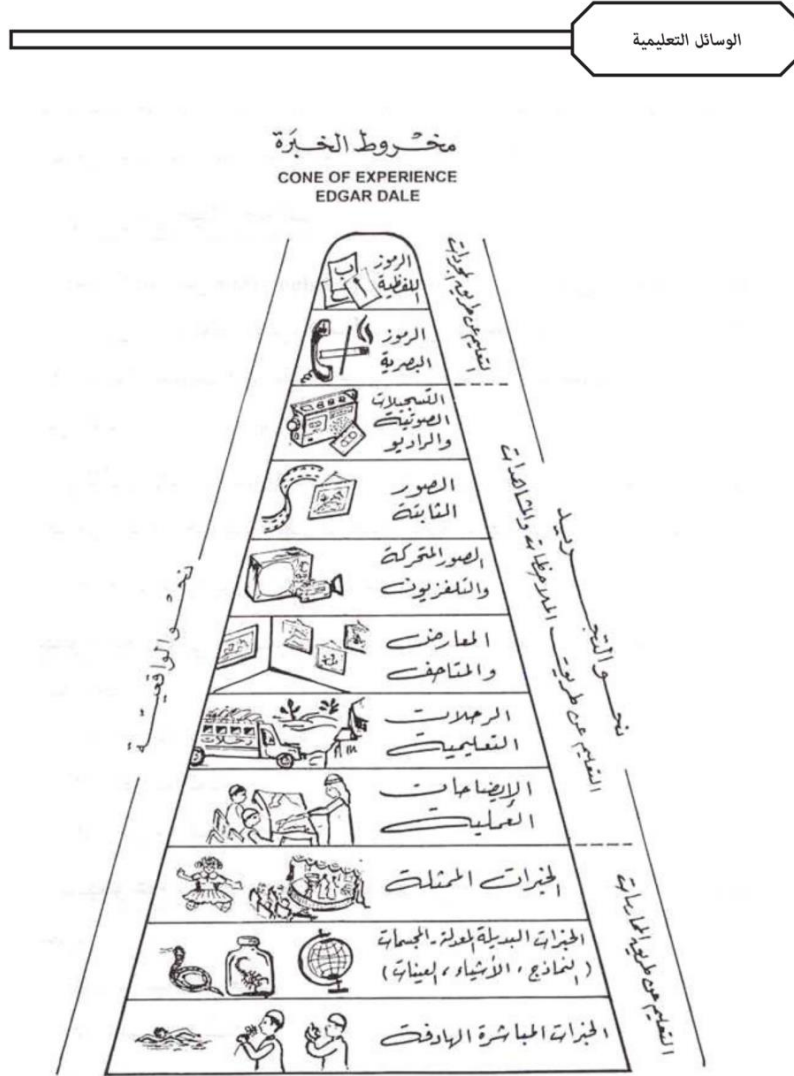 الوسائل التعليمية
مخروط الخبرة
CONE OF EXPERIENCE
EDGAR DALE
الرموز
اللفظية
الرموز
البصرية
التسجيلات
الصوتية
والراديو
الصور
الثابتة
الصور المتحركة
والتلفزيون
المعارض
والمتاحف
الرحلات
التعليمية
رحلات
الإيضاحات
العملية
الخبرات الممثلة
الخبرات البديلة المعدلة - المجسمات
(النماذج، الأشياء، العينات)
الخبرات المباشرة الهادفة
التعليم عن طريق المجردات
التعليم عن طريق الملاحظات والمشاهدات
التعليم عن طريق الممارسات
نحو التجريد
نحو الواقعية